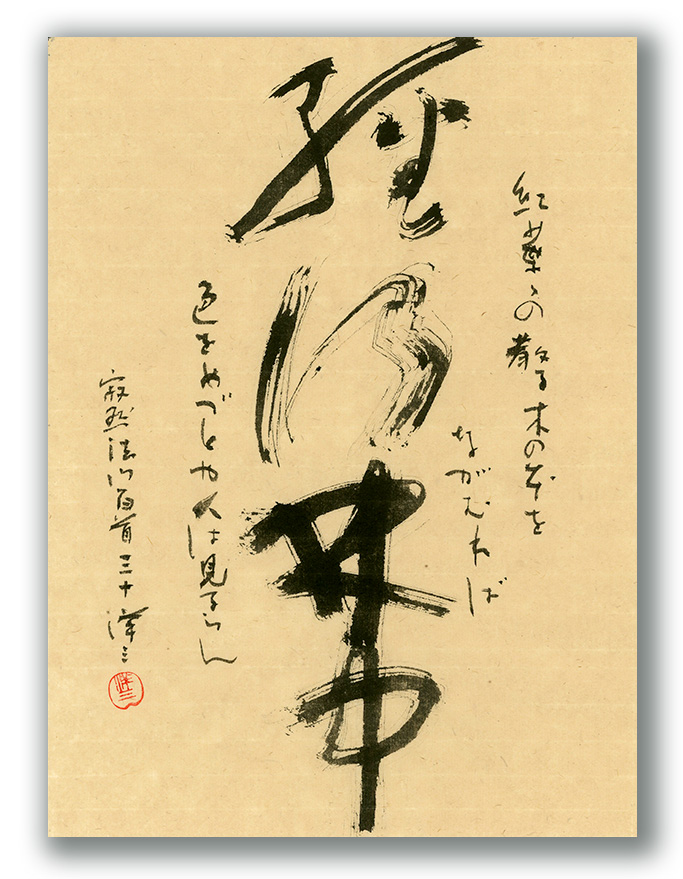 紅葉ゝの散る木の本を
ながむれば
経行林中
色をめづとや人は見るらん
寂然法門百首三十 洋三
洋三